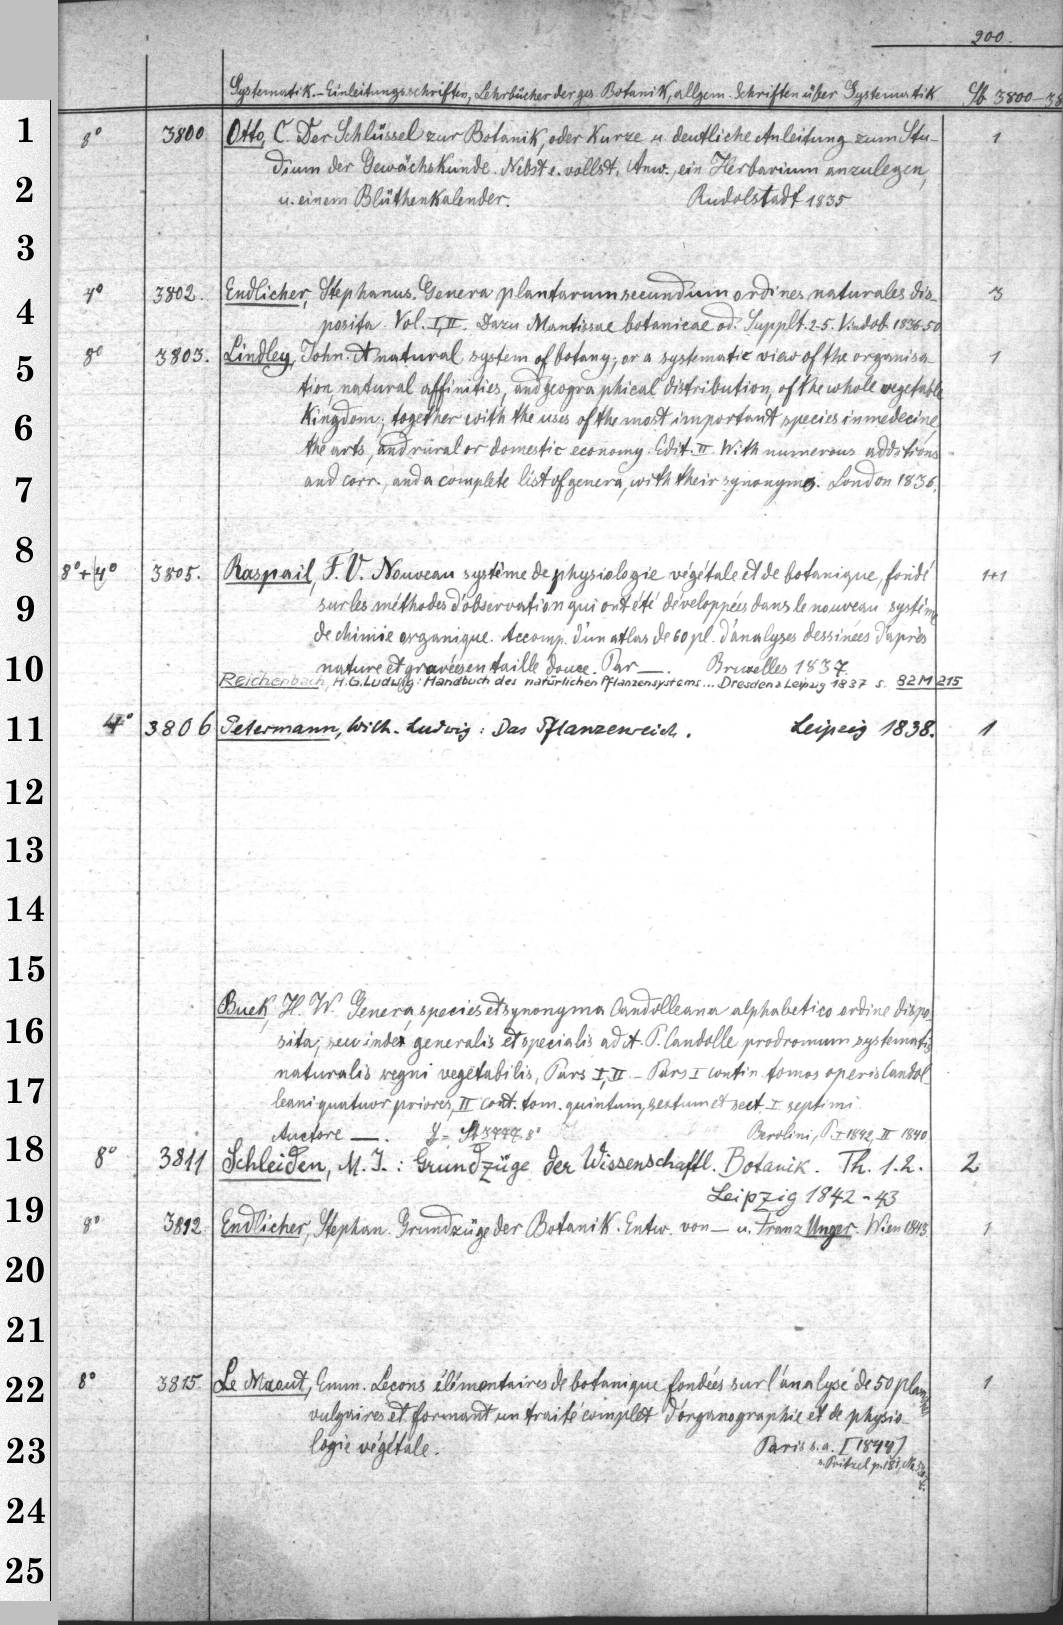 200.
Systematik.-Einleitungsschriften, Lehrbücher der ges. Botanik, allgem. Schriften über Systematik Sb 3800-38
1 8° 3800 Otto, C. Der Schlüssel zur Botanik, oder kurze u. deutliche Anleitung zum Stu- 1
dium der Gewächskunde. Nebst e. vollst. Anw., ein Herbarium anzulegen,
2 u. einem Blüthenkalender. Rudolstadt 1835
3
4° 3802. Endlicher, Stephanus. Genera plantarum secundum ordines naturales dis- 3
4 posita. Vol. I, II. Dazu Mantissae botanicae od. Supplt. 2-5. Vindob. 1836-50
5 8° 3803. Lindley, John. A natural system of botany; or a systematic view of the organisa- 1
tion, natural affinities, and geographical distribution, of the whole vegetable
6 Kingdom; together with the uses of the most important species in medecine,
the arts, and rural or domestic economy. Edit. II. With numerous additions
7 and corr., and a complete list of genera, with their synonyms. London 1836.
8
8°+4° 3805. Raspail, F. V. Nouveau système de physiologie végétale et de botanique, fondé 1+1
9 sur les méthodes d'observation qui ont été développées dans le nouveau système
de chimie organique. Accomp. d'un atlas de 60 pl. d'analyses dessinées d'après
10 nature et gravées en taille douce. Par —. Bruxelles 1837.
Reichenbach, H.G.Ludwig: Handbuch des natürlichen Pflanzensystems... Dresden u Leipzig 1837 s. 82 M 215
11 4° 3806 Petermann, Wilh. Ludwig: Das Pflanzenreich. Leipzig 1838. 1
12
13
14
15
Buek, H. W. Genera, species et synonyma Candolleana alphabetico ordine dispo-
16 sita; seu index generalis et specialis ad A. P. Candolle prodromum systematis
naturalis regni vegetabilis, Pars I, II - Pars I contin. tomos operis Candol-
17 leani quatuor priores, II cont. tom. quintum, sextum et sect. I septimi
Auctore —. 8° Berolini, P. I 1842, II 1840.
18 8° 3811 Schleiden, M. J.: Grundzüge der Wissenschaftl. Botanik. Th. 1.2. 2
Leipzig 1842-43
19 8° 3812. Endlicher, Stephan. Grundzüge der Botanik. Entw. von — u. Franz Unger. Wien 1843. 1
20
21
22 8° 3815. Le Maout, Emm. Lecons élémentaires de botanique fondées sur l'analyse de 50 plantes 1
vulgaires et formant un traité complet d'organographie et de physio-
23 logie végétale. Paris s.a. [1844]
Pritzel p. 181,
24
25